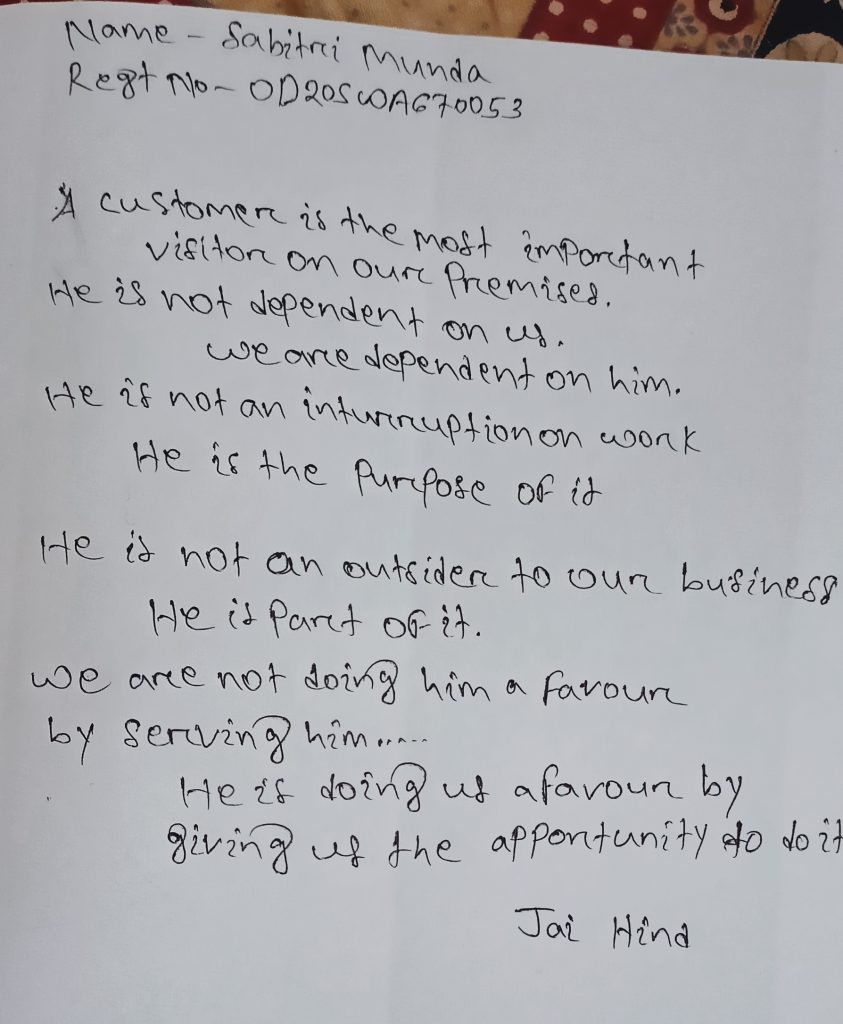 Name - Sabitri Munda
Regt No - OD20SWA670053
A customer is the most important
visitor on our Premises.
He is not dependent on us.
we are dependent on him.
He is not an inturruption on work
He is the Purpose of it
He is not an outsider to our business
He is Part of it.
we are not doing him a favour
by serving him.....
He is doing us a favour by
giving us the apportunity to do it
Jai Hind